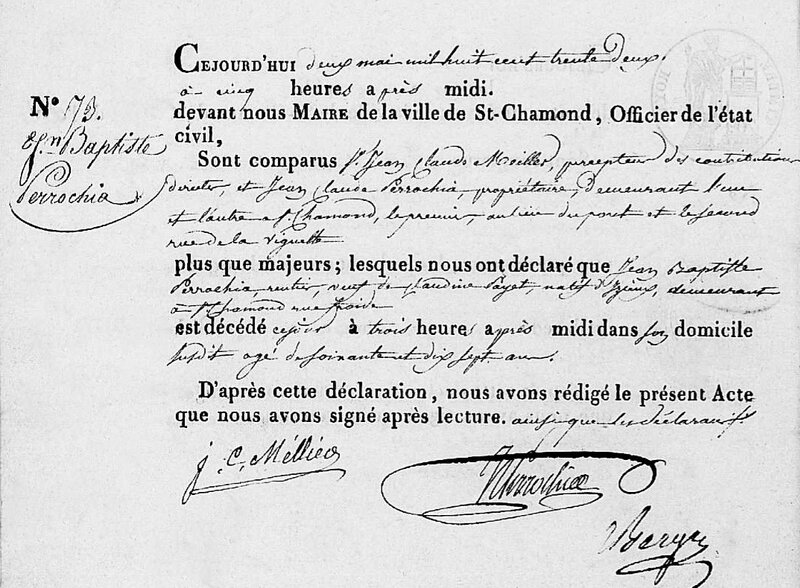 CEJOURD'HUI deux mai mil huit cent trente deux
à cinq heures après midi.
devant nous MAIRE de la ville de St-Chamond, Officier de l'état
civil,
N° 73.
Jn Baptiste
Perrochia
Sont comparus Sr. Jean Claude percepteur des contributions
directes, et Jean Claude Perrochia, propriétaire, demeurant l'un
et l'autre à St Chamond, le premier, au lieu du pont et le second
rue de la Viguette
plus que majeurs ; lesquels nous ont déclaré que Jean Baptiste
Perrochia rentier, veuf de Claudine Payet, natif d'Izieux, demeurant
à St Chamond rue froide
est décédé cejour à trois heures après midi dans son domicile
susdit agé de soixante et dix sept ans.
D'après cette déclaration, nous avons rédigé le présent Acte
que nous avons signé après lecture. ainsi que les déclarants
j. C. Perrochia